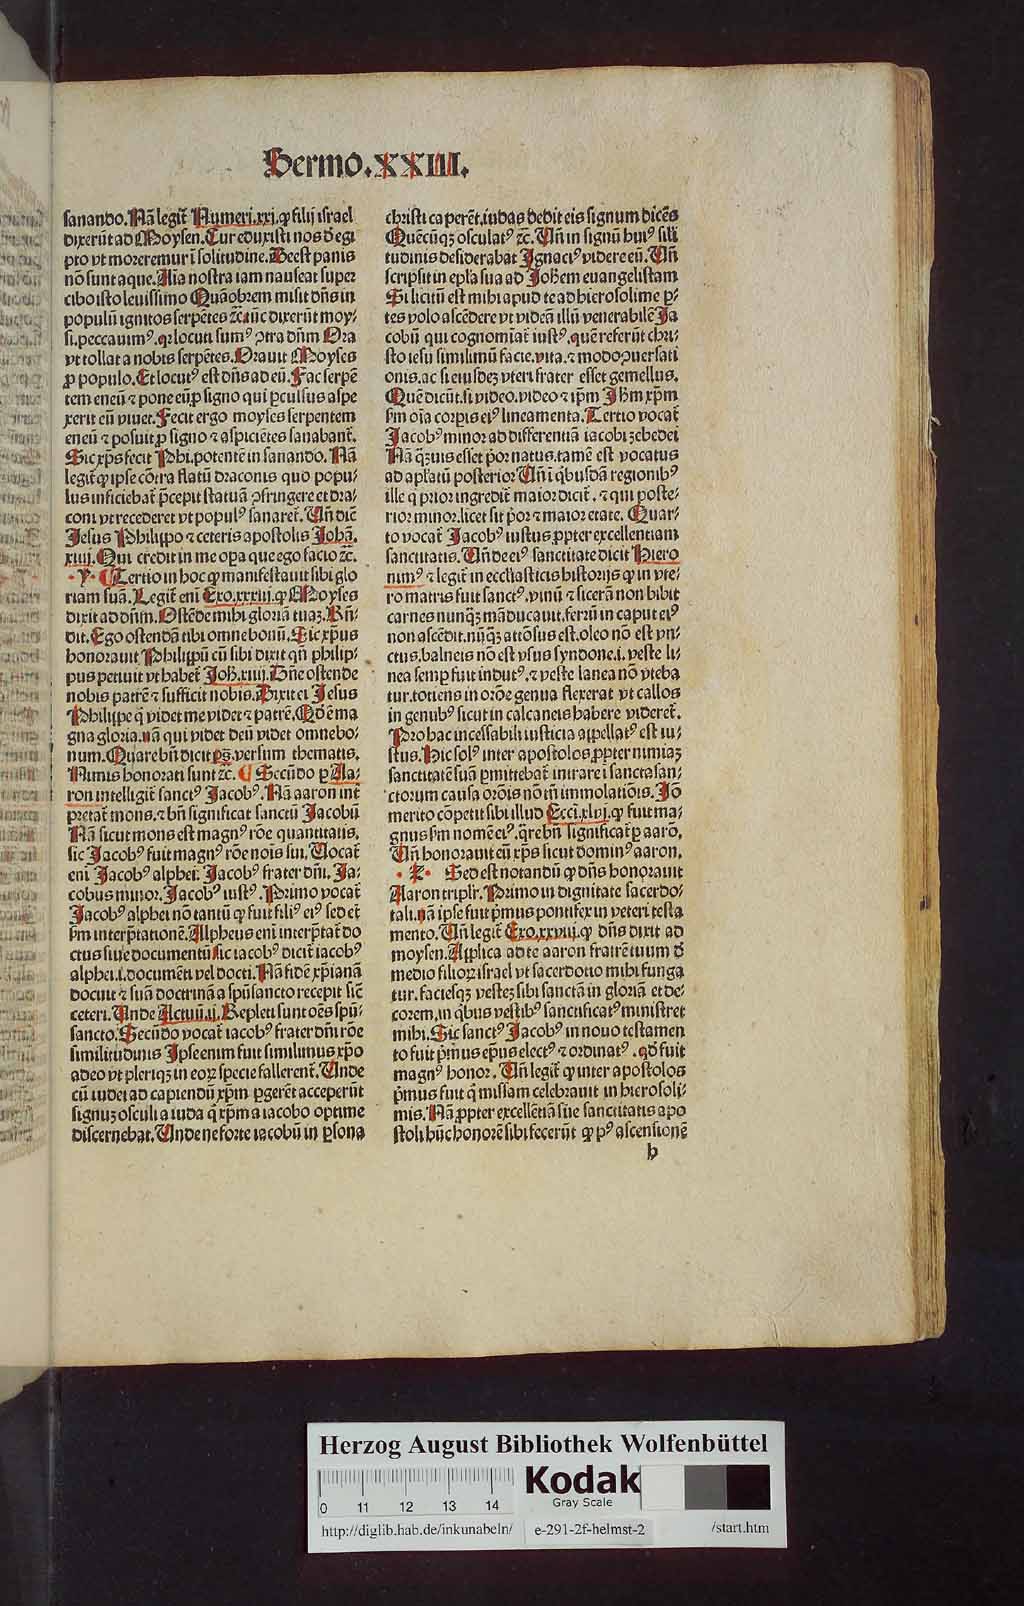 Sermo.XXIII.
sanando. Nã legit̃ Numeri.xxi. ꝙ filij israel
dixerũt ad Moysen. Cur eduxisti nos d̕ egi
pto vt moreremur ĩ solitudine. Deest panis
nõ sunt aque. Aĩa nostra iam nauseat super
cibo isto leuissimo Quãobrem misit dñs in
populũ ignitos serpẽtes ⁊c̃. tũc dixerũt moy⸗
si. peccauimꝰ. qꝛ locuti sumꝰ ↄtra dñm Ora
vt tollat a nobis serpẽtes. Orauit Moyses
ꝓ populo. Et locutꝰ est dñs ad eũ. Fac serpẽ
tem eneũ ⁊ pone eũ ꝓ signo qui ꝑcussus aspe
xerit eũ viuet. Fecit ergo moyses serpentem
eneũ ⁊ posuit ꝓ signo ⁊ aspiciẽtes sanabant̃.
Sic xp̃s fecit Phi. potentẽ in sanando. Nã
legit̃ ꝙ ipse cõtra flatũ draconis quo popu⸗
lus inficiebat̃ p̃cepit statuã ↄfringere et dra⸗
coni vt recederet vt populꝰ sanaret̃. Vñ dic̃
Jesus Philippo ⁊ ceteris apostolis Johã.
xiiij. Qui credit in me opa que ego facio ⁊c̃.
·V· ¶ Tertio in hoc ꝙ manifestauit sibi glo
riam suã. Legit̃ eni Exo.xxxiij. ꝙ Moyses
dixit ad dñm. Ostẽde mihi gloriã tuaꝫ. Rñ⸗
dit. Ego ostendã tibi omne bonũ. Sic xp̃us
honorauit Philippũ cũ sibi dixit qñ philip⸗
pus petiuit vt habet̃ Joh̃.xiiij. Dñe ostende
nobis patrẽ ⁊ sufficit nobis. Dixit ei Jesus
Philippe q̃ videt me videt ⁊ patrẽ. Qd̕ ẽ ma
gna gloria. nã qui videt deũ videt omne bo⸗
num. Quare bñ dicit pg̃. versum thematis.
Nimis honorati sunt ⁊c̃. ¶ Secũdo ꝑ Aa⸗
ron intelligit̃ sanctꝰ Jacobꝰ. Nã aaron int̃
pretat̃ mons. ⁊ bñ significat sanctũ Jacobũ
Nã sicut mons est magnꝰ rõe quantitatis,
sic Jacobꝰ fuit magnꝰ rõe nois sui. Vocat̃
eni Jacobꝰ alphei. Jacobꝰ frater dñi. Ja⸗
cobus minor. Jacobꝰ iustꝰ. Primo vocat̃
Jacobꝰ alphei nõ tantũ ꝙ fuit filiꝰ eiꝰ sed et̃
ẜm interp̃tationẽ. Alpheus eni interp̃tat̃ do
ctus siue documentũ sic iacobꝰ dicit̃ iacobꝰ
alphei. i. documẽti vel docti. Nã fidẽ xp̃ianã
docuit ⁊ suã doctrinã a spũsancto recepit sic̃
ceteri. Vnde Actuũ.ij. Repleti sunt oẽs spũ⸗
sancto. Secũdo vocat̃ iacobꝰ frater dñi rõe
similitudinis Ipse enim fuit similimus xp̃o
adeo vt pleriqꝫ in eoꝝ specie fallerent̃. Vnde
cũ iudei ad capiendũ xp̃m ꝑgerẽt acceperũt
signuꝫ osculi a iuda q̃ xp̃m a iacobo optime
discernebat. Vnde ne forte iacobũ in ꝑsona
christi caperẽt. iudas dedit eis signum dicẽs
Quẽcũqꝫ osculatꝰ ⁊c̃. Vñ in signũ huiꝰ sili
tudinis desiderabat Ignaciꝰ videre eũ. Vñ
scripsit in epl̃a sua ad Joh̃em euangelistam
Si licitũ est mihi apud te ad hierosolime ꝑ⸗
tes volo ascẽdere vt videã illũ venerabilẽ Ja
cobũ qui cognoiat̃ iustꝰ. quẽ referũt chri⸗
sto iesu similimũ facie. vita. ⁊ modo ↄuersati
onis. ac si eiusdeꝫ vteri frater esset gemellus.
Quẽ dicũt. si video. video ⁊ ip̃m Ih̃m xp̃m
ẜm oĩa corpis eiꝰ lineamenta. Tertio vocat̃
Jacobꝰ minor ad differentiã iacobi zebedei
Nã qꝫuis esset p̃or natus. tamẽ est vocatus
ad apl̃atũ posterior Vñ ĩ q̃busdã regionibꝰ
ille q̃ prior ingredit̃ maior dicit̃. ⁊ qui poste⸗
rior minor. licet sit p̃or ⁊ maior etate. Quar⸗
to vocat̃ Jacobꝰ iustus ꝓpter excellentiam
sanctitatis. Vñ de eiꝰ sanctitate dicit Hiero
nimꝰ ⁊ legit̃ in ecclĩasticis historijs ꝙ in vte⸗
ro matris fuit sanctꝰ. vinũ ⁊ sicerã non bibit
carnes nunqꝫ mãducauit. ferrũ in caput eiꝰ
non ascẽdit. nũqꝫ attõsus est. oleo nõ est vn⸗
ctus. balneis nõ est vsus syndone. i. veste li⸗
nea semꝑ fuit indutꝰ. ⁊ veste lanea nõ vteba
tur. totiens in orõe genua flexerat vt callos
in genubꝰ sicut in calcaneis habere videret̃.
Pro hac incessabili iusticia appellatꝰ est iu⸗
stus. Hic solꝰ inter apostolos ꝓpter nimiaꝫ
sanctitatẽ suã ꝑmittebat̃ intrare ĩ sancta san⸗
ctorum causa orõis nõ tñ immolatiõis. Jõ
merito cõpetit sibi illud Ecci.xlvi. ꝙ fuit ma⸗
gnus ẜm nomẽ eiꝰ. q̃re bñ significat̃ ꝑ aarõ.
Vñ honorauit eũ xp̃s sicut dominꝰ aaron.
·X· Sed est notandũ ꝙ dñs honorauit
Aaron triplr̃. Primo in dignitate sacerdo⸗
tali. nã ipse fuit p̃mus pontifex in veteri testa
mento. Vñ legit̃ Exo.xxviij. ꝙ dñs dixit ad
moysen. Applica ad te aaron fratrẽ tuum d̕
medio filioꝝ israel vt sacerdotio mihi funga
tur. faciesqꝫ vesteꝫ sibi sanctã in gloriã et de⸗
corem, in q̃bus vestibꝰ sanctificatꝰ ministret
mihi. Sic sanctꝰ Jacobꝰ in nouo testamen
to fuit p̃mus ep̃us electꝰ ⁊ ordinatꝰ. qd̕ fuit
magnꝰ honor. Vñ legit̃ ꝙ inter apostolos
p̃mus fuit q̃ missam celebrauit in hierosoli⸗
mis. Nã ꝓpter excellẽtiã sue sanctitatis apo
stoli hũc honorẽ sibi fecerũt ꝙ pꝰ ascensionẽ
b
Herzog August Bibliothek Wolfenbüttel
0 11 12 13 14
Kodak
Gray Scale
http://diglib.hab.de/inkunabeln/ e-291-2f-helmst-2 /start.htm